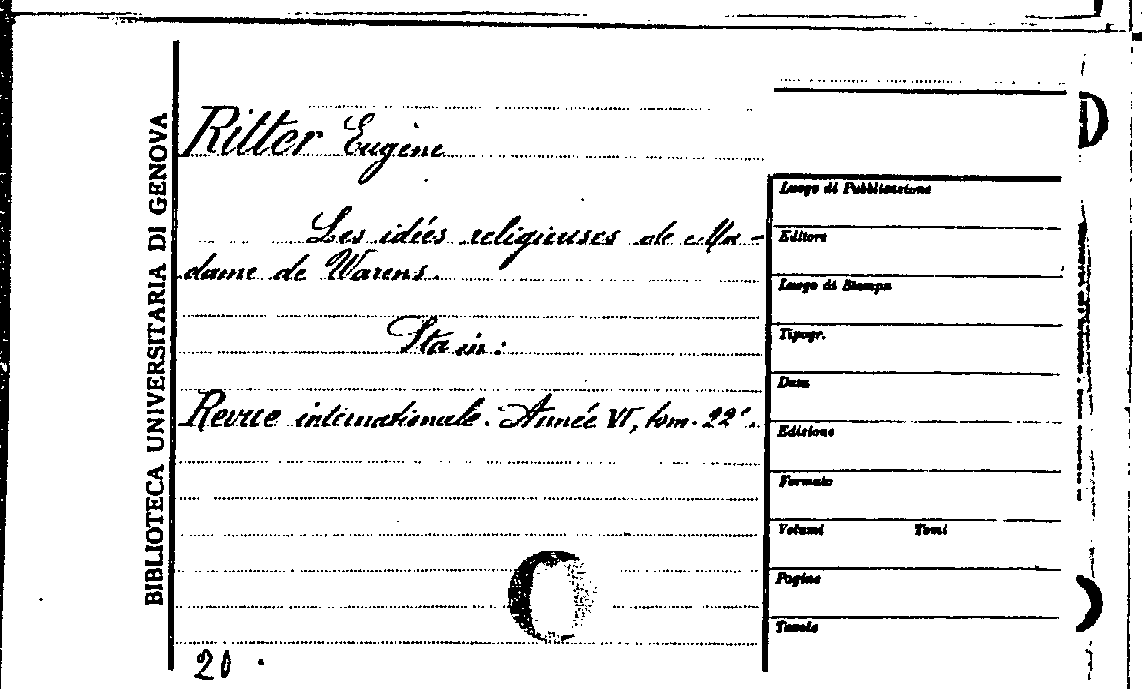 BIBLIOTECA UNIVERSITARIA DI GENOVA
Ritter Eugène
Les idées religieuses de Ma-
dame de Warens.
Sta in:
Revue internationale. Année VI, tom. 22°.
20
Luogo di Pubblicazione
Editore
Luogo di Stampa
Tipogr.
Data
Edizione
Formato
Volumi Tomi
Pagine
Tavole